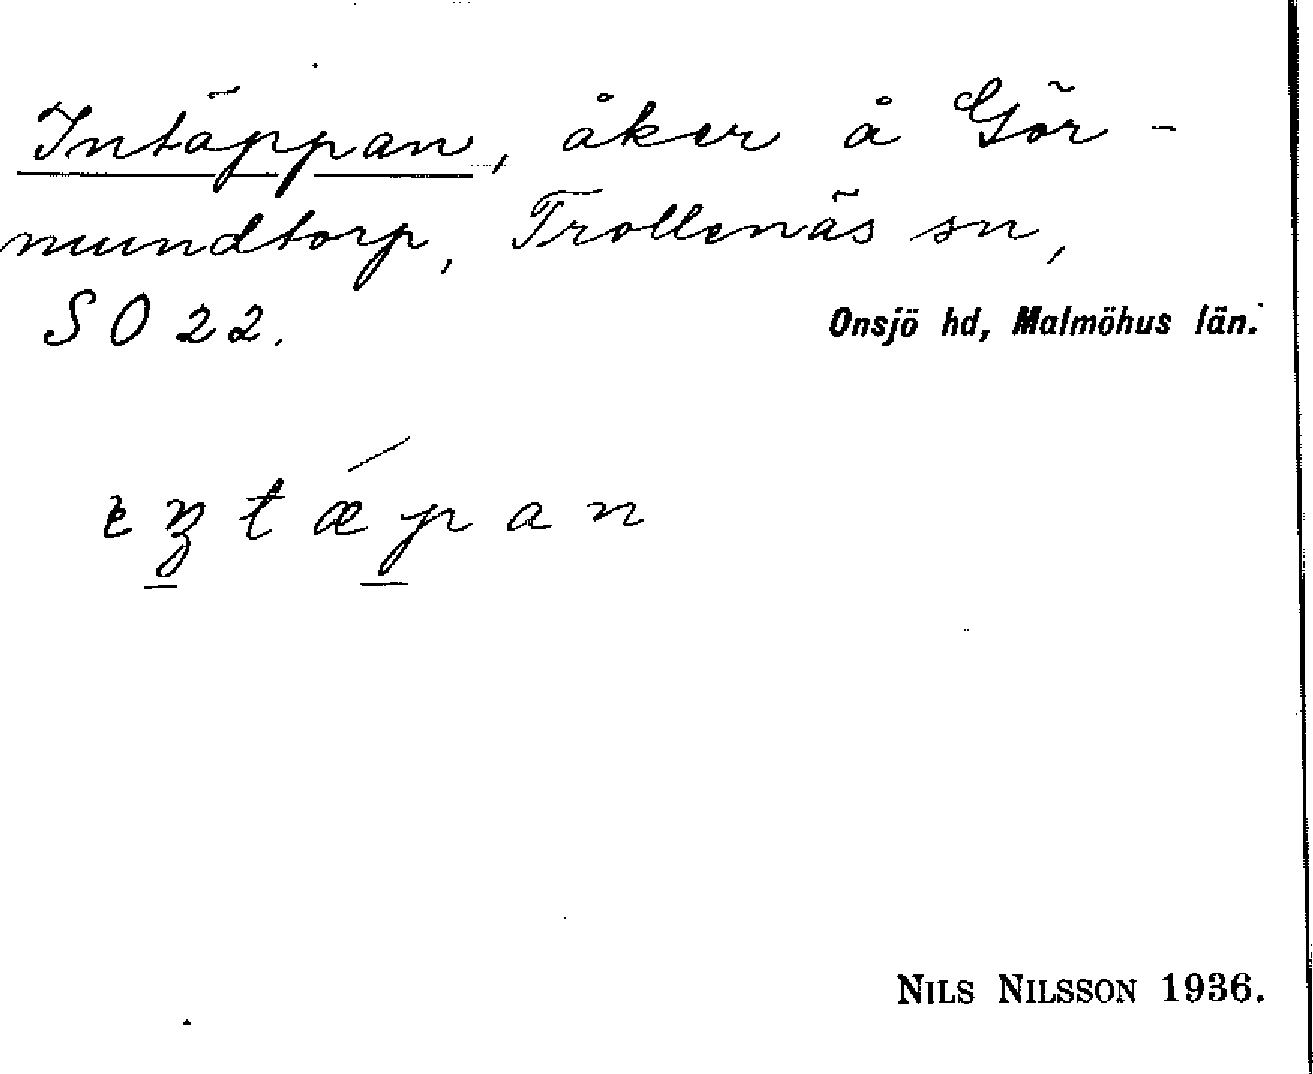 Intäppan, åker å Gör-
mundtorp, Trollenäs sn,
SO 22.
Onsjö hd, Malmöhus län.
NILS NILSSON 1936.